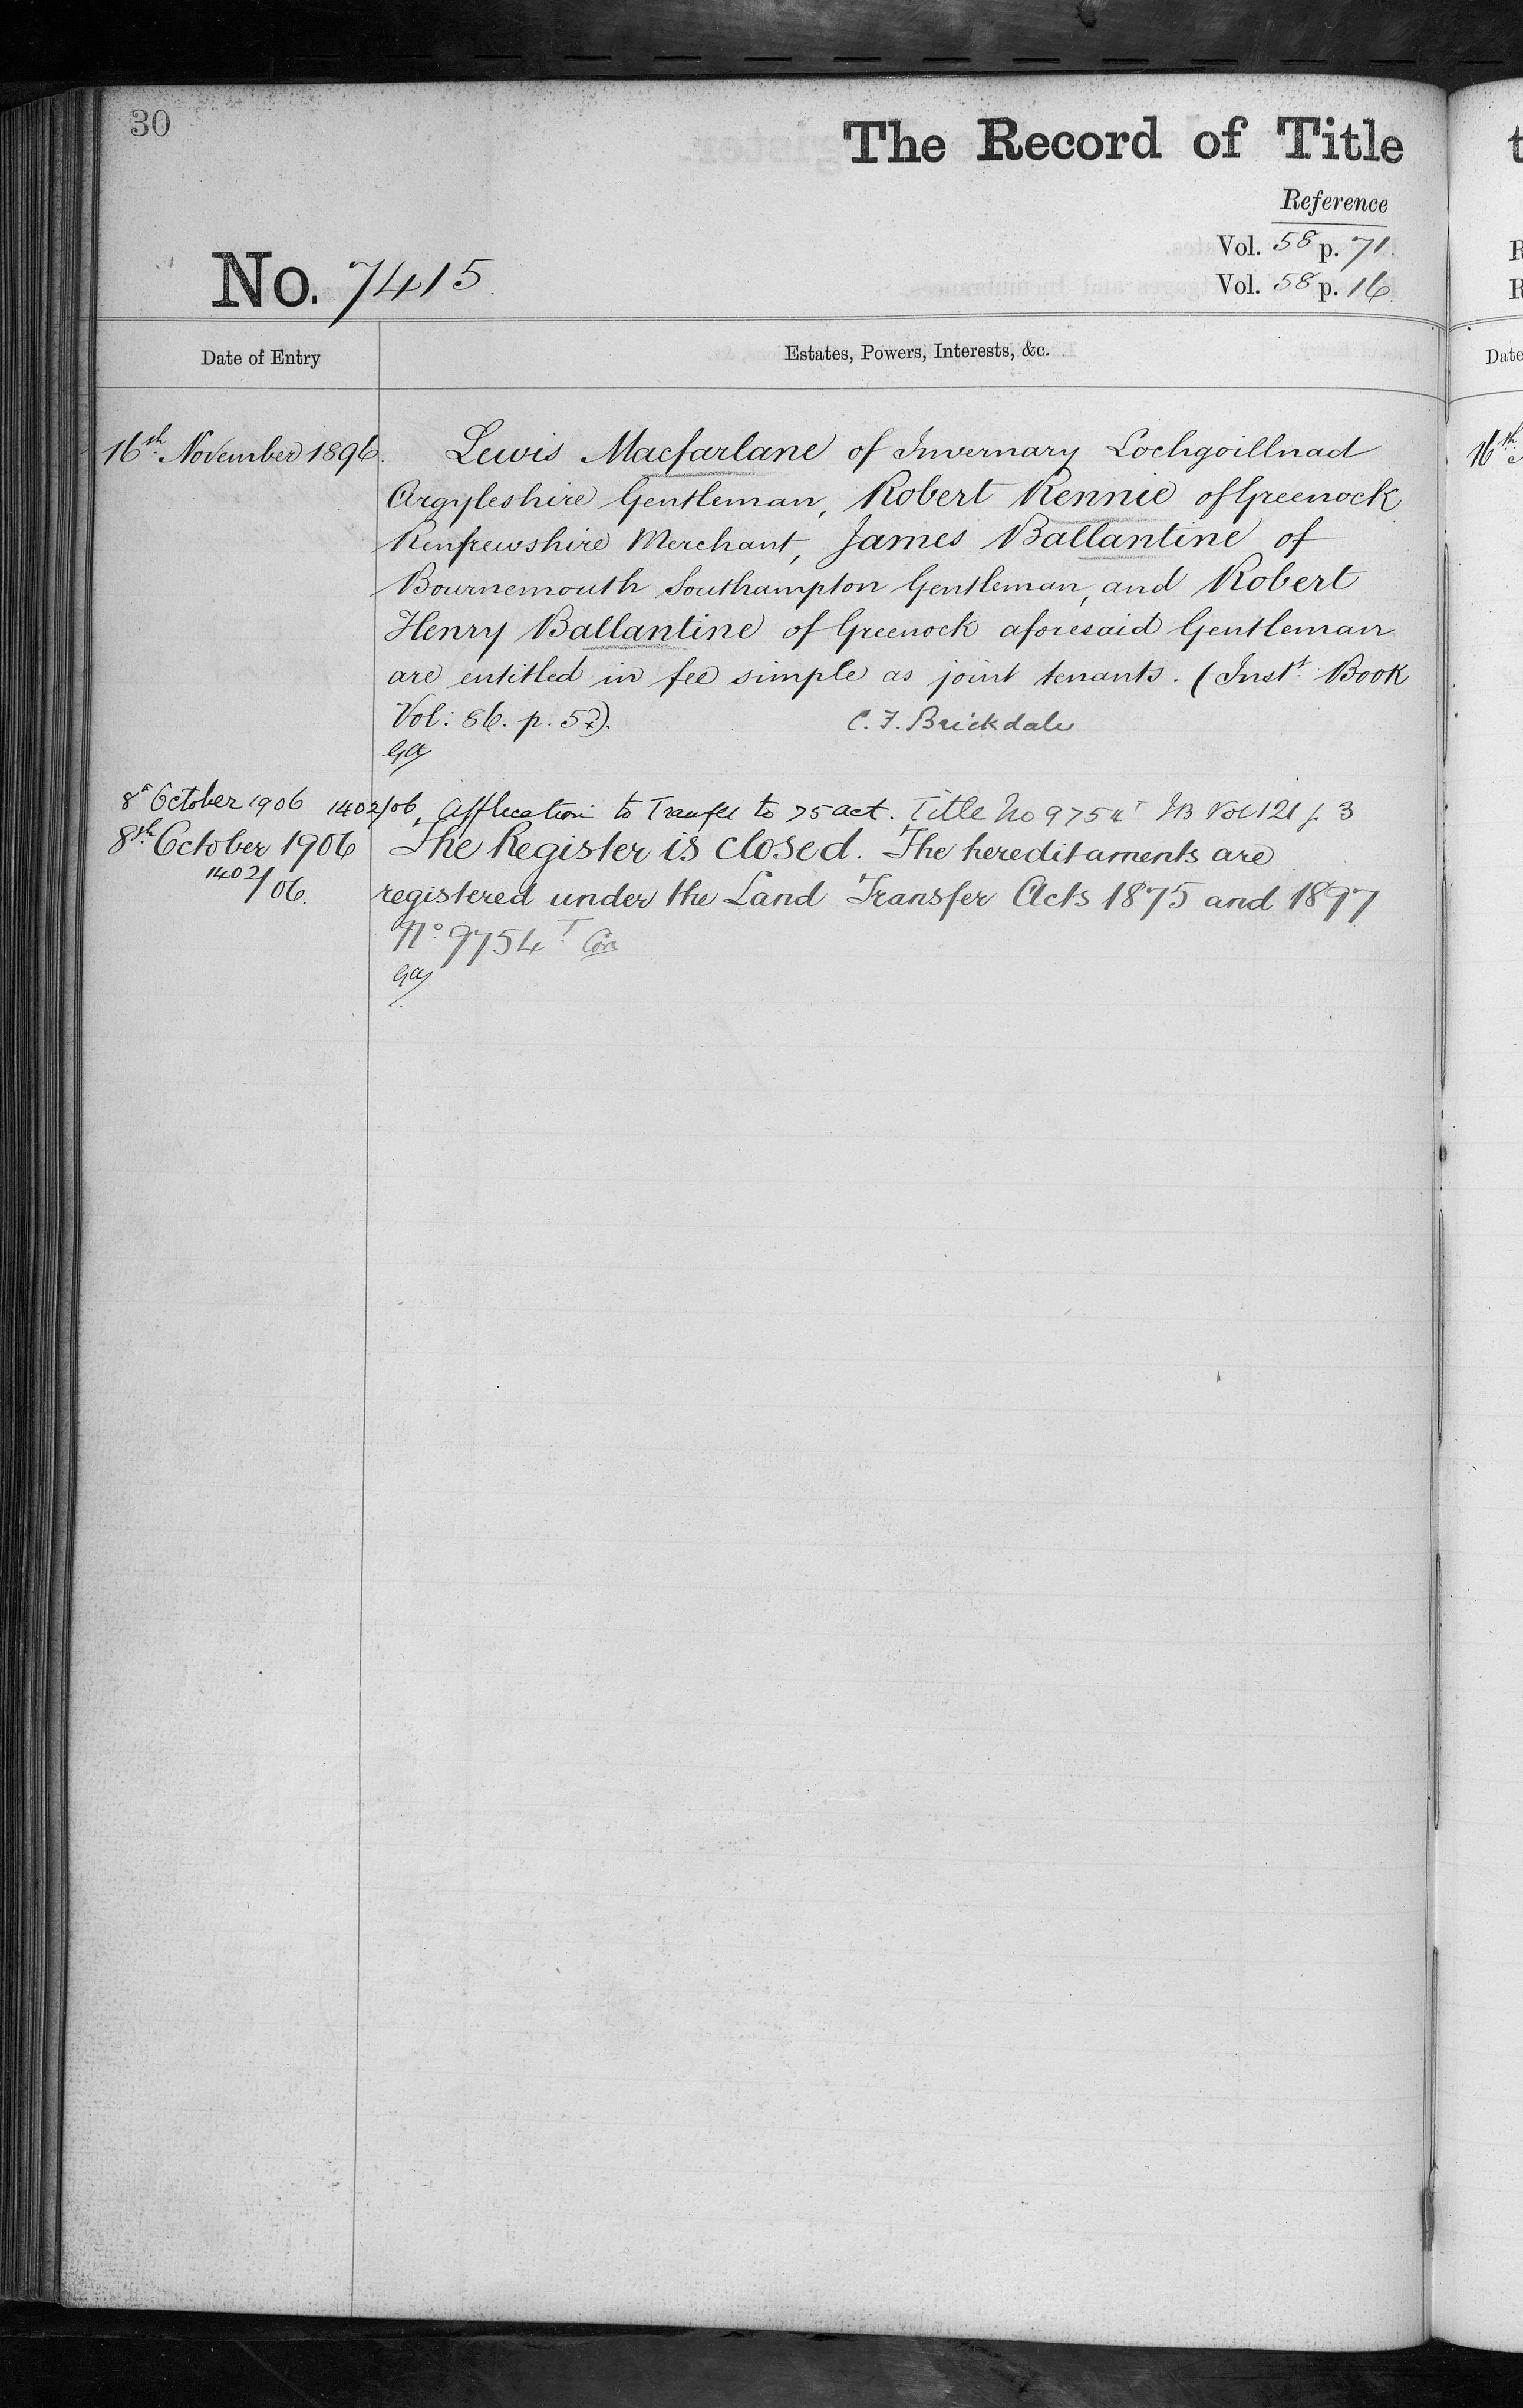 30
The Record of Title
Reference
Vol. 58 p. 71.
No. 7415.
Vol. 58 p. 16.
Date of Entry
Estates, Powers, Interests, &c.
Date
16th November 1896. Lewis Macfarlane of Invernary Lochgoillnad
16th
Argyleshire Gentleman, Robert Rennie of Greenock
Renfrewshire Merchant, James Ballantine of
Bournemouth Southampton Gentleman, and Robert
Henry Ballantine of Greenock aforesaid Gentleman
are entitled in fee simple as joint tenants. (Inst. Book
Vol: 86. p. 52). C. F. Brickdale
GA
8th October 1906 1402/06, Application to Transfer to 75 act. Title No 9754T IB Vol 121 p. 3
8th October 1906 The Register is closed. The hereditaments are
1402/06. registered under the Land Transfer Acts 1875 and 1897
No. 9754T
GA